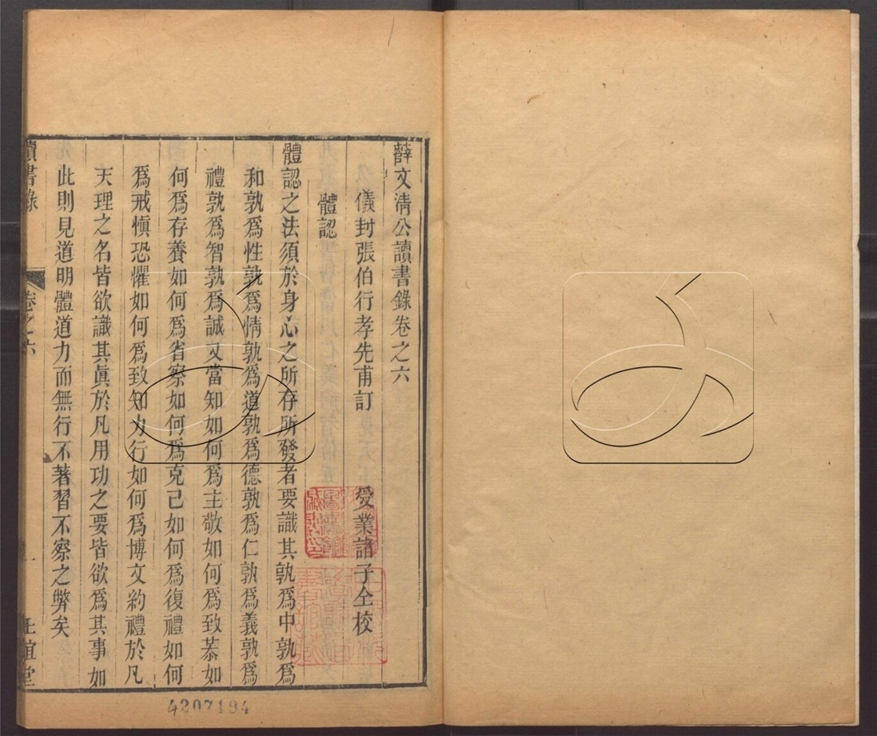 薛文清公讀書錄卷之六
儀封張伯行孝先甫訂 受業諸子仝校
體認
體認之法須於身心之所存所發者要識其孰爲中孰爲
和孰爲性孰爲情孰爲道孰爲德孰爲仁孰爲義孰爲
禮孰爲智孰爲誠又當知如何爲主敬如何爲致恭如
何爲存養如何爲省察如何爲克己如何爲復禮如何
爲戒慎恐懼如何爲致知力行如何爲博文約禮於凡
天理之名皆欲識其眞於凡用功之要皆欲爲其事如
此則見道明體道力而無行不著習不察之弊矣
讀書錄 卷之六 一 正誼堂
4207194